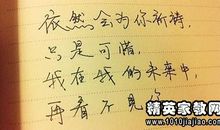 依然会为你祈祷，
只是可惜，
我在我的未来中，
再看不见你
精英家教网
www.1010jiajiao.com